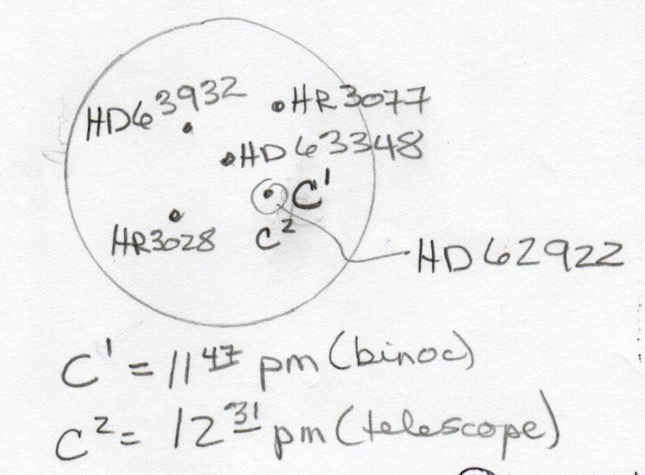 HD63932
HR3077
HD63348
C¹
C²
HR3028
HD62922
C¹ = 11 47 pm (binoc)
C² = 12 31 pm (telescope)